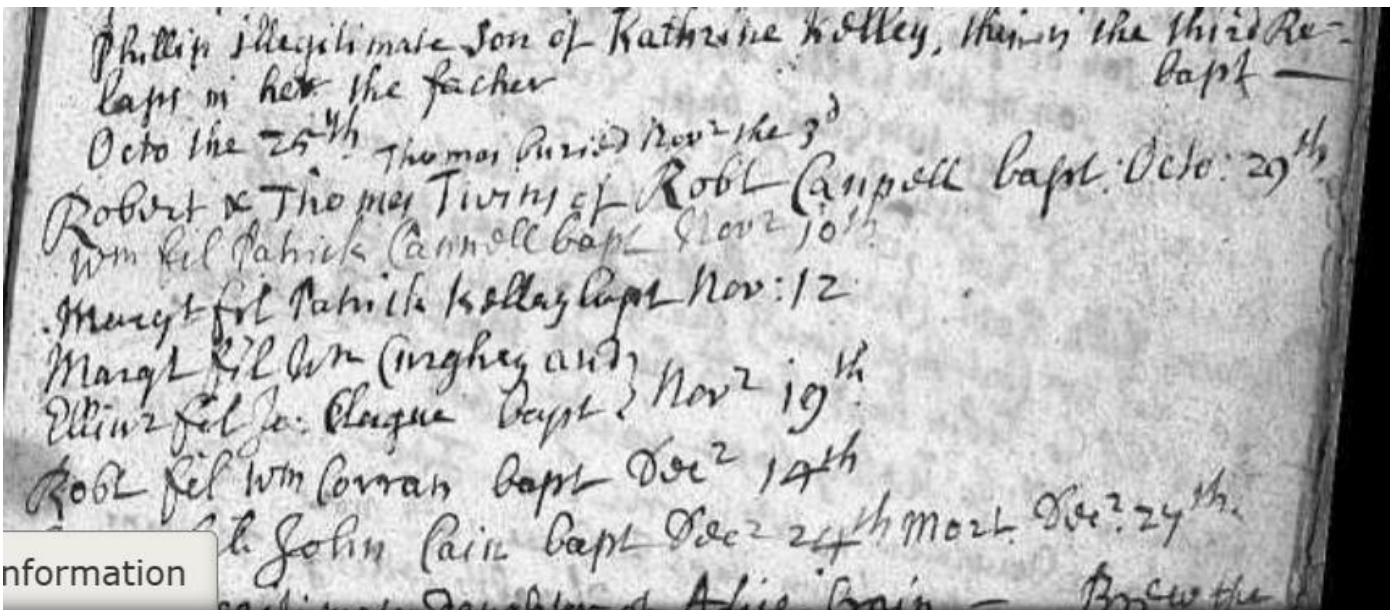 Phillip illegitimate Son of Kathrine Kelley, this is the third Re-
laps in her the father bapt
Octo the 25th Thomas buried Novr the 3d
Robert & Thomas Twins of Robt Cannell bapt: Octo: 29th
Wm fil Patrick Cannell bapt Novr 10th
Margt fil Patrick Kelley bapt Nov: 12
Margt fil Wm Curghey and
Ellinr fil Jo: Clague bapt Novr 19th
Robt fil Wm Corran bapt Decr 14th
John Cain bapt Decr 24th Mort. Decr. 27th.
Daughter of Alice
nformation